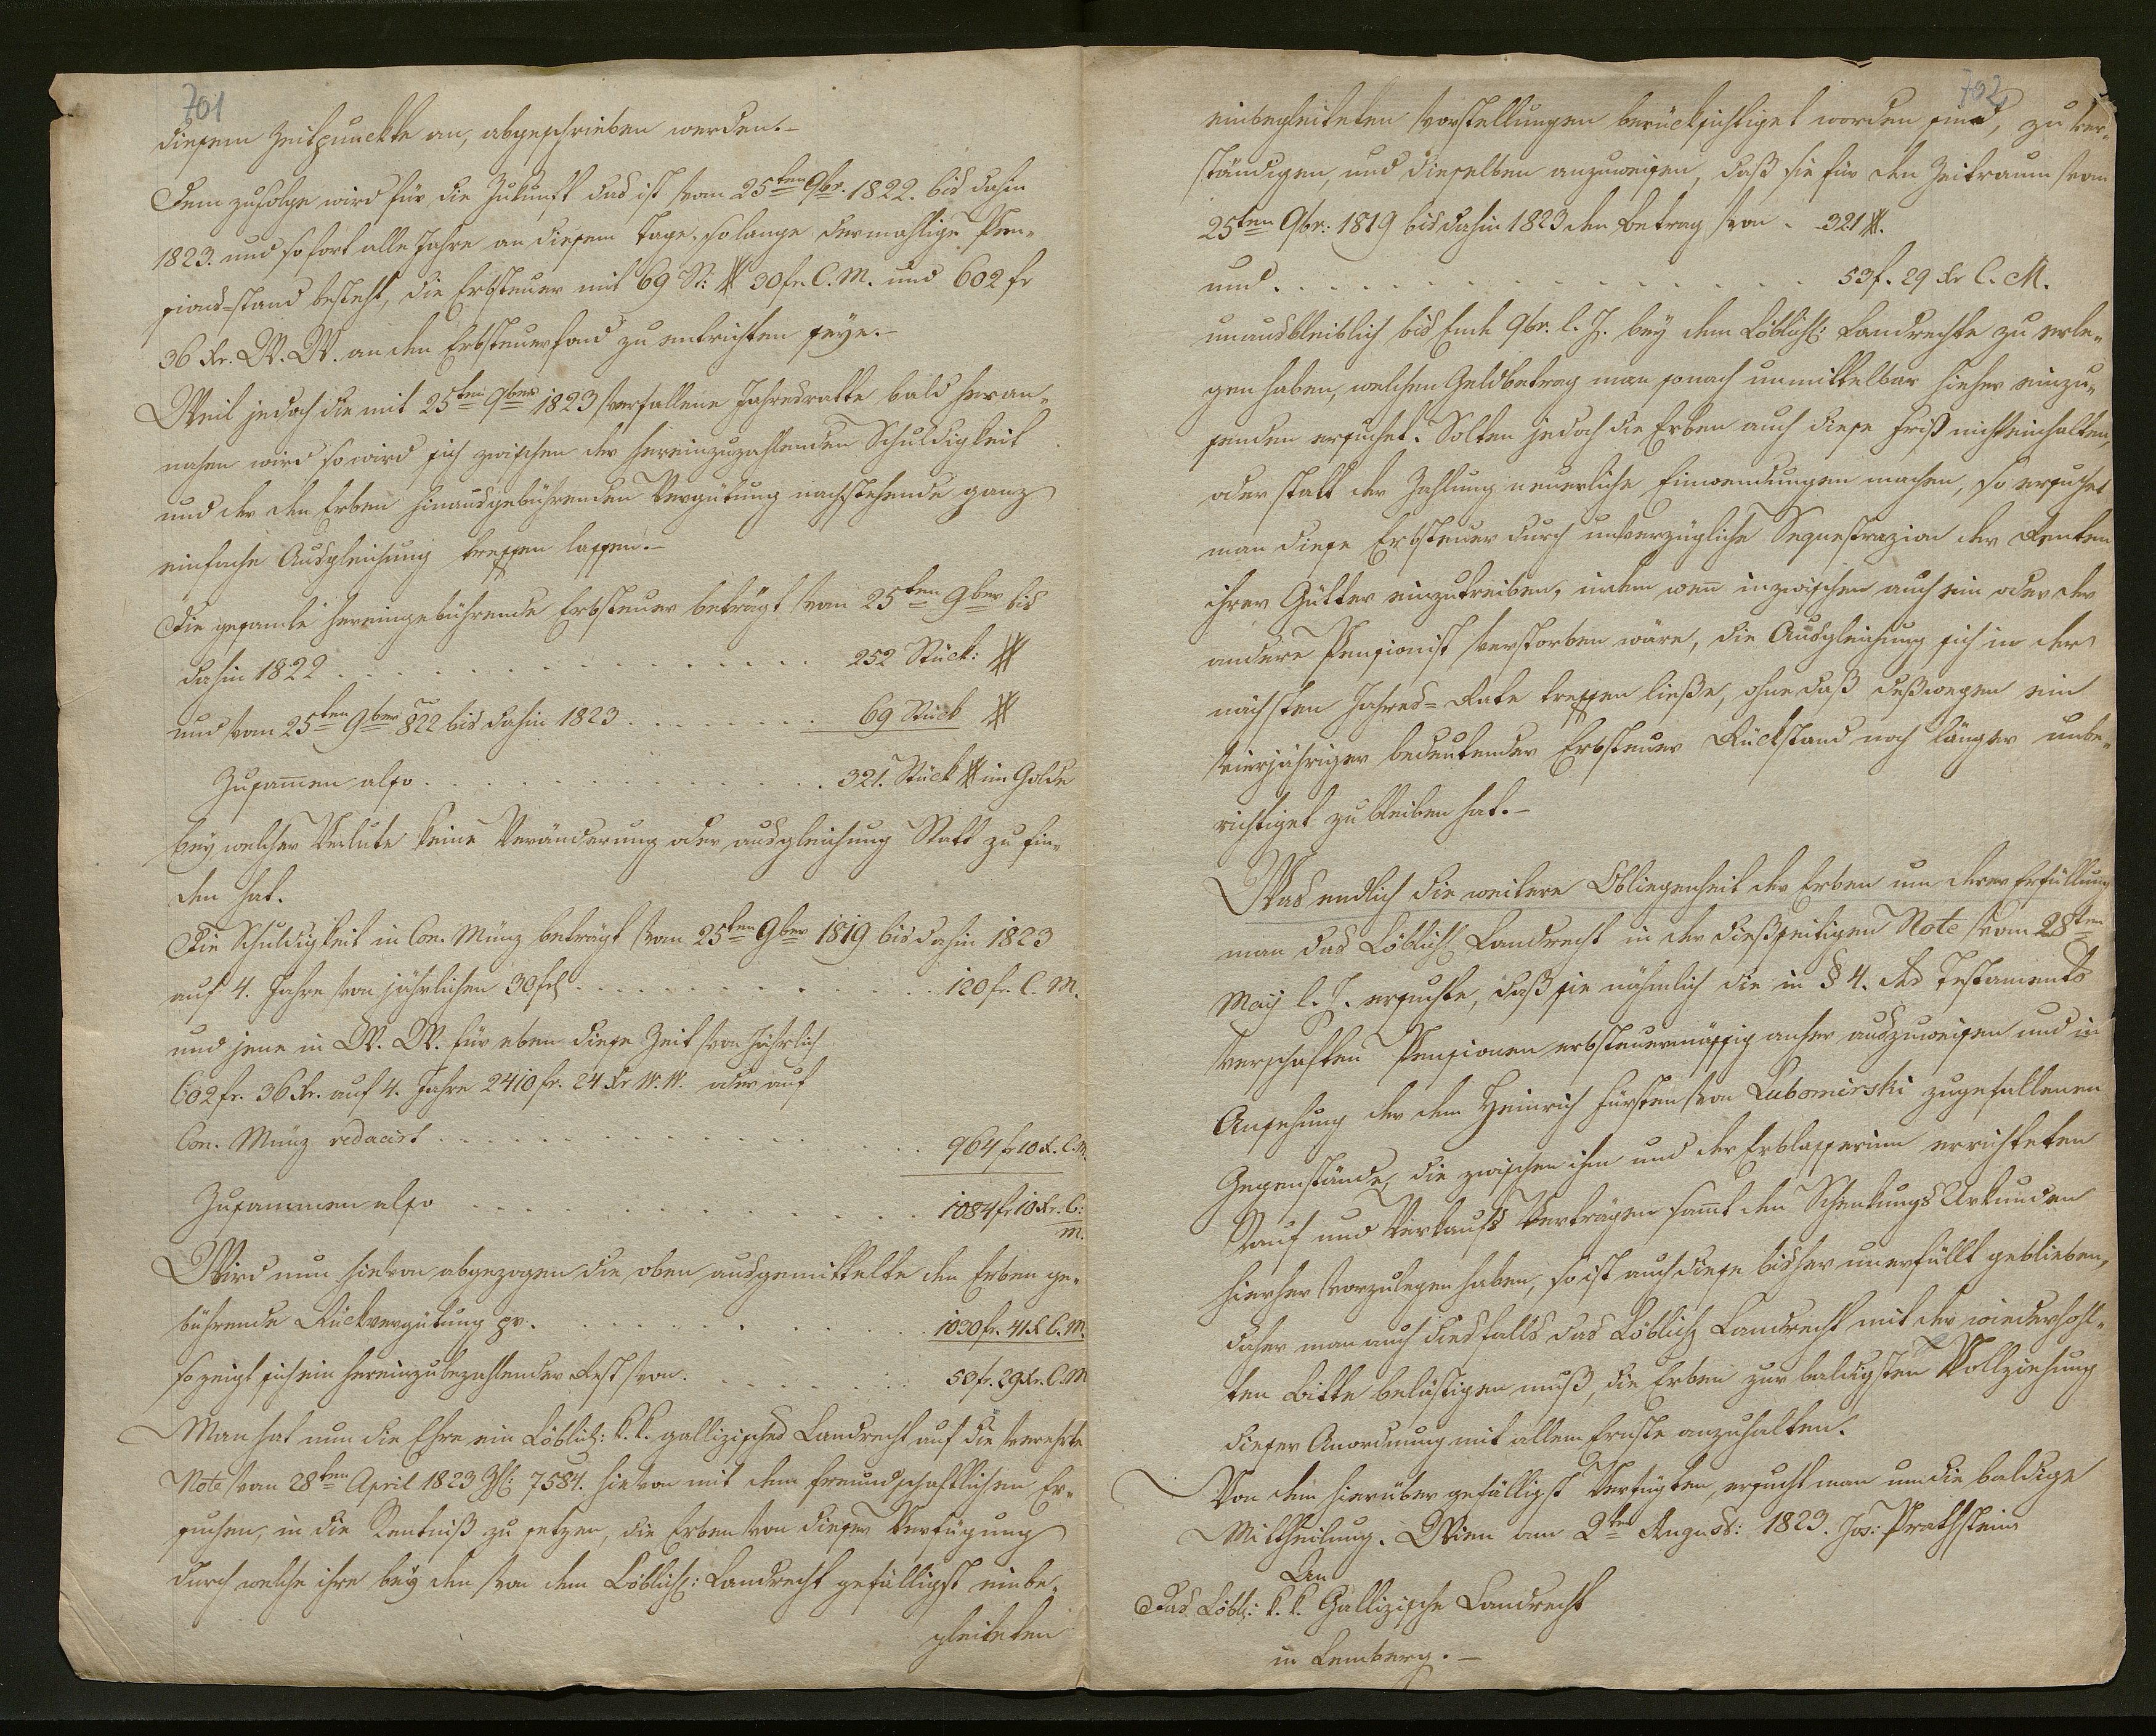 701
diesem Zeitpunckte an, abgeschrieben werden.-
Dem zufolge wird für die Zukunft das ist vom 25ten 9br. 1822. bis dahin
1823. und so fort alle Jahre an diesem Tage, solange dermahlige Pen-
sions-stand besteht, die Erbsteuer mit 69 St: # 30 fr. C. M. und 602 fr
36 Xr. W. W. an den Erbsteuerfond zu entrichten seye.-
Weil jedoch die mit 25ten 9ber 1823 verfallene Jahresratte bald heran-
nahen wird so wird sich zwischen der hereinzuzahlenden Schuldigkeit
und der den Erben hinausgebührenden Vergütung nachstehende ganz
einfache Ausgleichung treffen lassen.-
Die gesamte hereingebührende Erbsteuer beträgt vom 25ten 9ber bis
dahin 1822 . . . . . . . . . . . . . . 252 Stück: #
und vom 25ten 9ber 822 bis dahin 1823 . . . . . . . 69 Stück #
Zusamen also . . . . . . . . . . . . . . 321. Stück # im Golde
bey welcher Valute keine Veränderung oder ausgleichung Statt zu fin-
den hat.
Die Schuldigkeit in Con. Münz beträgt vom 25ten 9ber 1819 bis dahin 1823
auf 4. Jahre von jährlichen 30 fr . . . . . . . . . . . . 120 fr. C. M.
und jene in W. W. für eben diese Zeit von Jährlich
602 fr. 36 Xr. auf 4. Jahre 2410 fr. 24 Xr W. W. oder auf
Con. Münz reducirt . . . . . . . . . . . . . . 964 fr 10 X. C. M.
Zusammen also . . . . . . . . . . . . . . 1084 fr 10 Xr. C:
M.
Wird nun hievon abgezogen die oben ausgemittelte den Erben ge-
bührende Rückvergütung pr. . . . . . . . . . . . . 1030 fr. 41 X C. M.
so zeigt sich ein hereinzubezahlender Rest von . . . . . . . . 53 fr. 29 Xr. C. M
Man hat nun die Ehre ein Löblich: k. k. gallizisches Landrecht auf die verehrte
Note vom 28ten April 1823 Zhl: 7584. hievon mit dem freundschaftlichen Er-
suchen, in die Kentniß zu setzen, die Erben von dieser Verfügung
durch welche ihre bey den von dem Löblich: Landrecht gefälligst einbe-
gleiteten
702
einbegleiteten Vorstellungen berücksichtiget worden sind, zu ver-
ständigen, und dieselben anzuweisen, daß sie für den Zeitraum vom
25ten 9br: 1819 bis dahin 1823 den Betrag von . 321 #.
und . . . . . . . . . . . . . . . . . . 53 f. 29 Xr C. M.
unausbleiblich bis Ende 9br. l. J. bey dem Löblich: Landrechte zu erle-
gen haben, welchen Geldbetrag man sonach unmittelbar hieher einzu-
senden ersuchet. Solten jedoch die Erben auch diese Frist nicht einhalten,
oder statt der Zahlung neuerliche Einwendungen machen, so ersuchet
man diese Erbsteuer durch unverzügliche Sequestrazion der Renten
ihrer Gütter einzutreiben, indem wen inzwischen auch ein oder der
andere Pensionist verstorben wäre, die Ausgleichung sich in der
nächsten Jahres-Rate treffen ließe, ohne daß deßwegen ein
vierjähriger bedeutender Erbsteuer Rückstand noch länger unbe-
richtiget zu bleiben hat.-
Was endlich die weitere Obliegenheit der Erben um deren Erfüllung
man das Löblich Landrecht in der dießseitigen Note vom 28ten
May l. J. ersuchte, daß sie nähmlich die in § 4. des Testaments
verschaften Pensionen erbsteuermässig anher auszuweisen und in
Ansehung der dem Heinrich Fürsten von Lubomirski zugefallenen
Gegenstände, die zwischen ihm und der Erblasserinn errichteten
Kauf und Verkaufs Verträgen samt den Schenkungs Urkunden
hierher vorzulegen haben, so ist auch diese bisher unerfüllt geblieben,
daher man auch diesfalls das Löblich Landrecht mit der wiederhohl-
ten Bitte belästigen muß, die Erben zur baldigsten Vollziehung
dieser Anordnung mit allem Ernste anzuhalten.
Von dem hierüber gefälligst Verfügten, ersucht man um die baldige
Mittheilung. Wien am 2ten August: 1823. Jos: Prathstein
An
Das Löbl: k. k. Gallizische Landrecht
in Lemberg.-